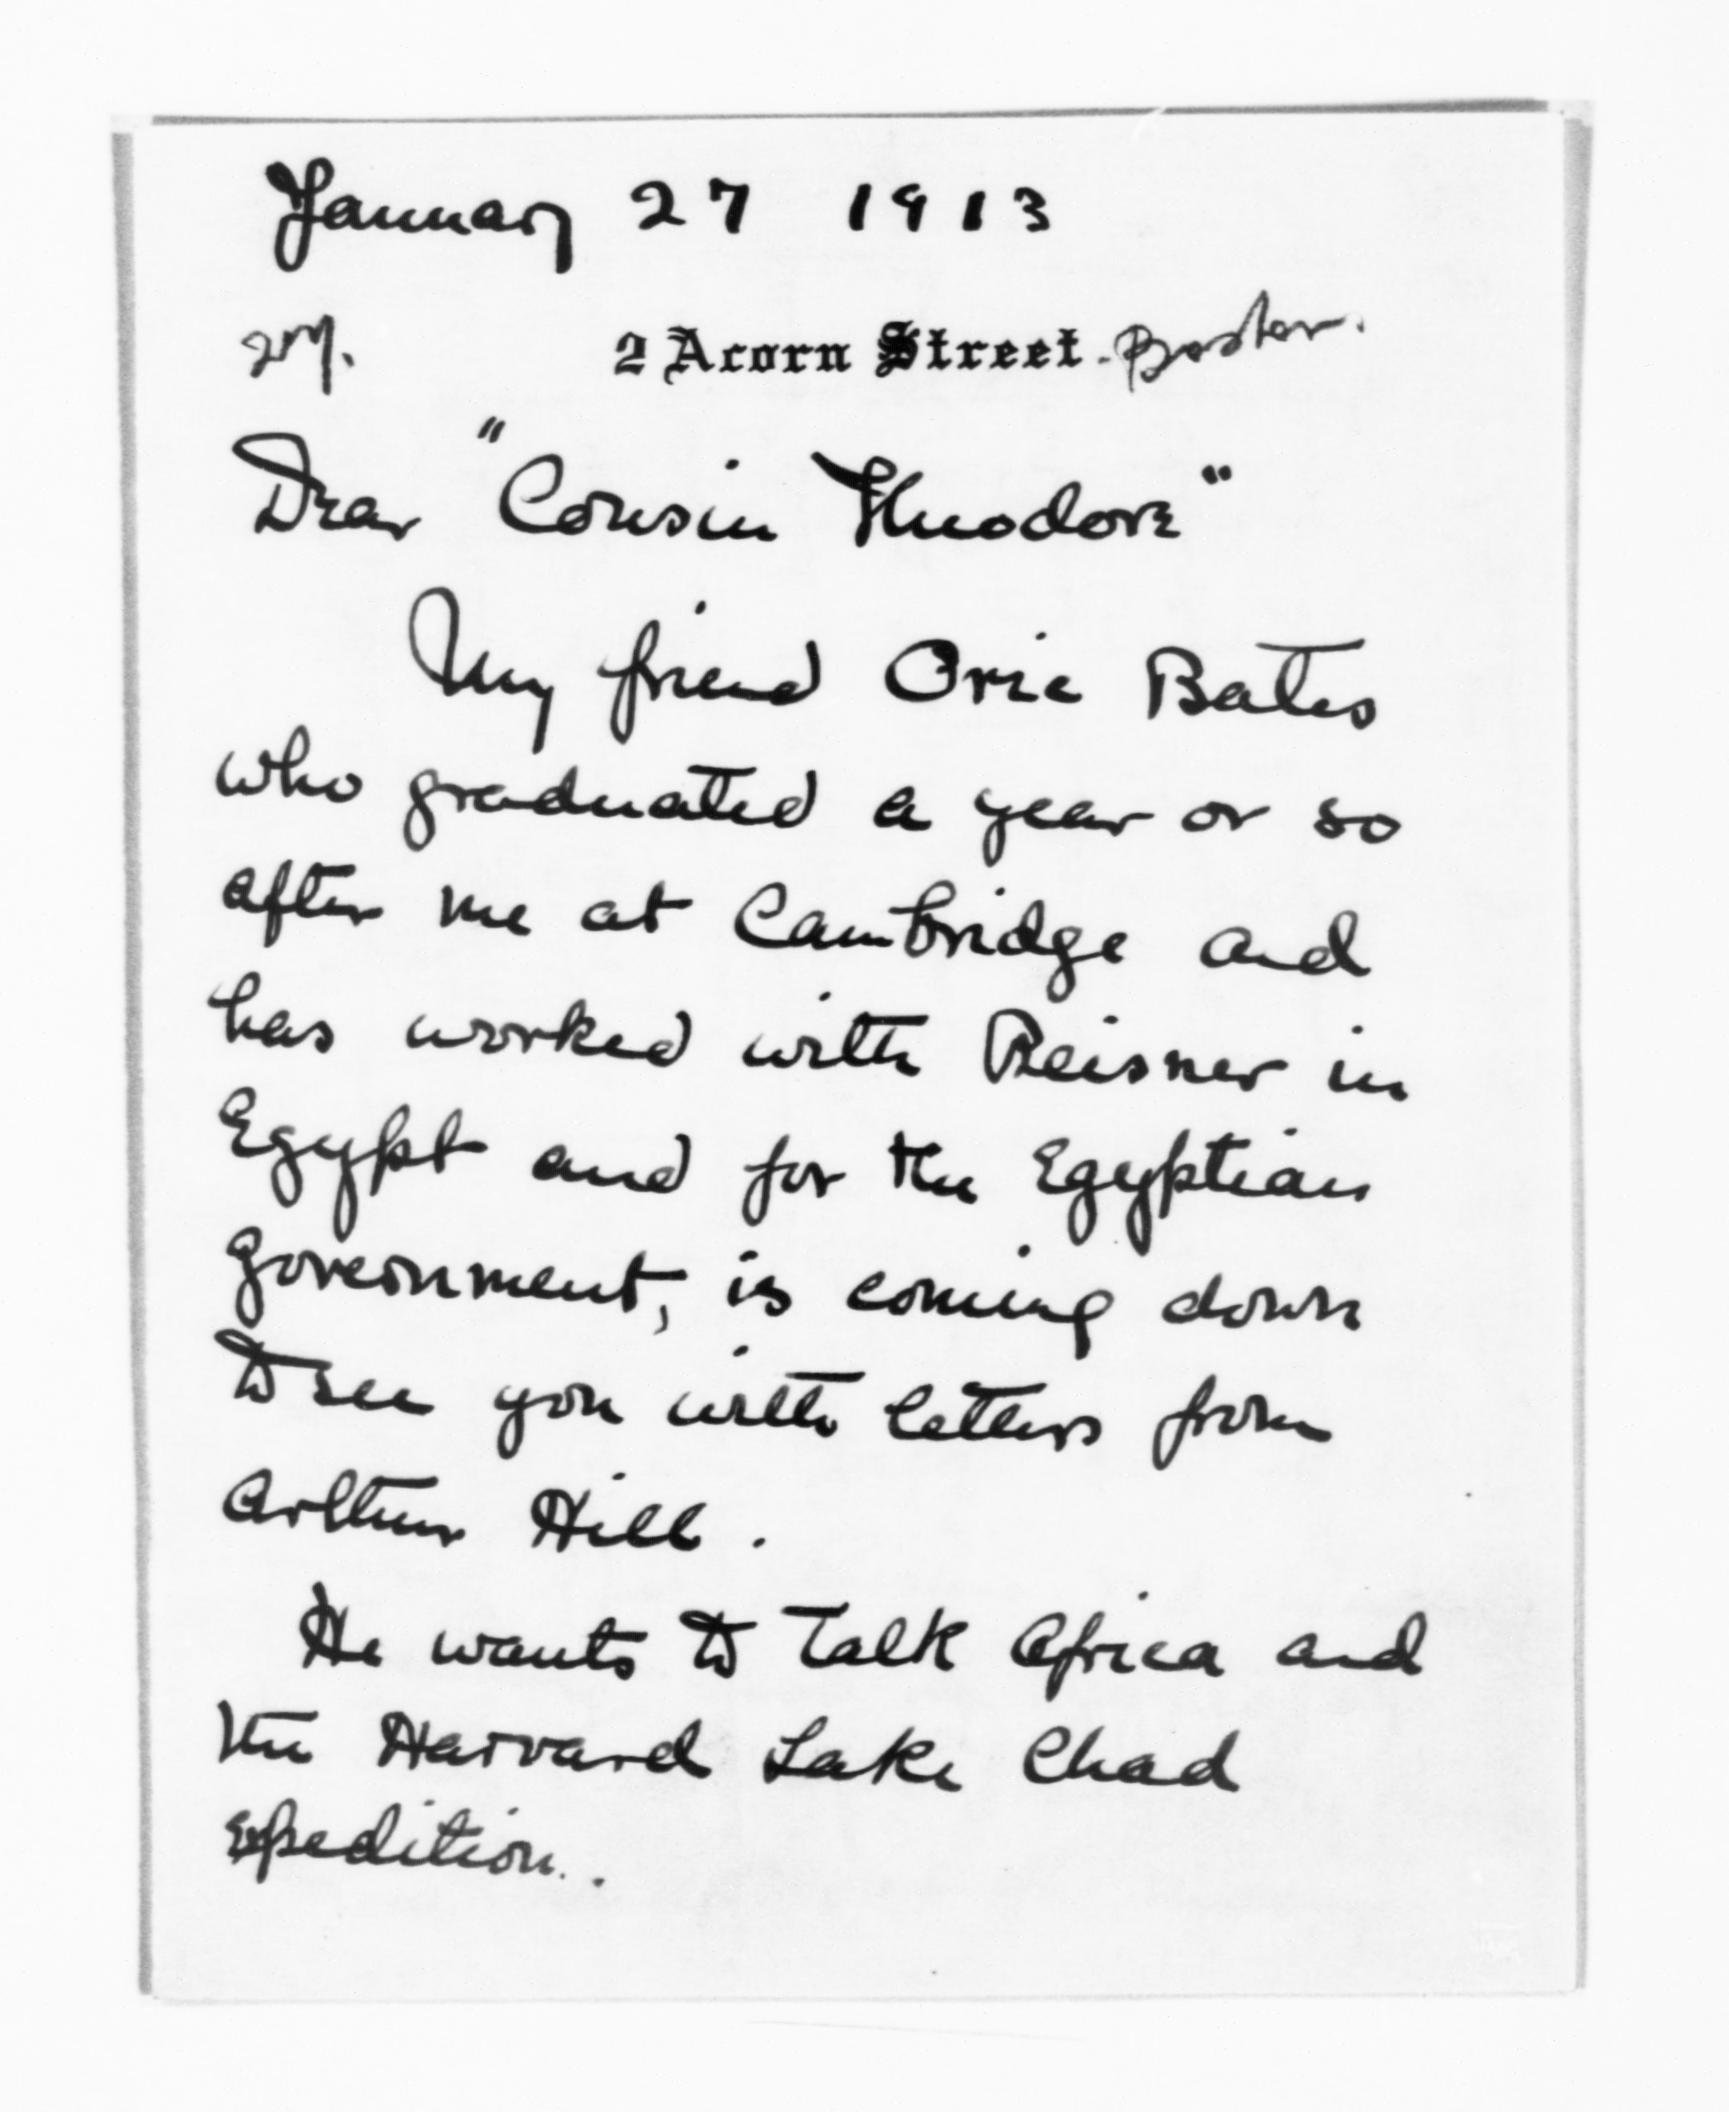 January 27 1913
2 Acorn Street. Boston.
Dear "Cousin Theodore"
My friend Oric Bates
who graduated a year or so
after me at Cambridge and
has worked with Reisner in
Egypt and for the Egyptian
Government, is coming down
to see you with letters from
Arthur Hill.
He wants to talk Africa and
the Harvard Lake Chad
Expedition..